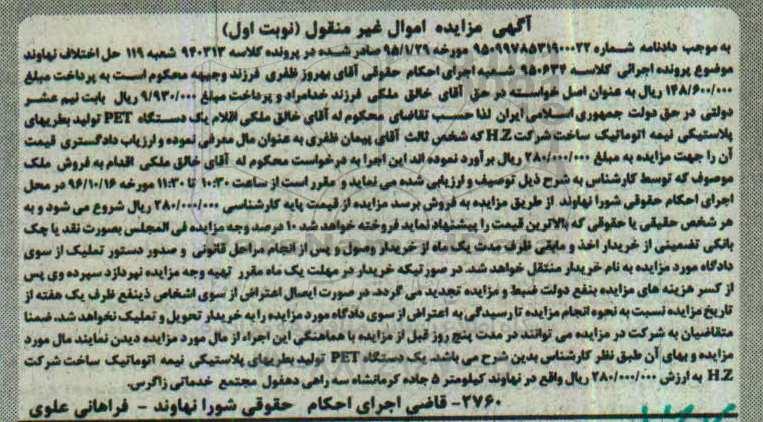 آگهی مزایده اموال غیر منقول (نوبت اول)
به موجب دادنامه شماره ۹۵۰۹۹۷۸۵۳۱۹۰۰۰۲۲ مورخه ۹۵/۱/۲۹ صادر شده در پرونده کلاسه ۹۴۰۳۱۳ شعبه ۱۱۹ حل اختلاف نهاوند
موضوع پرونده اجرائی کلاسه ۹۵۰۶۳۴ شعبه اجرای احکام حقوقی آقای بهروز ظفری فرزند وجیهه محکوم است به پرداخت مبلغ
۱۴۸/۶۰۰/۰۰۰ ریال به عنوان اصل خواسته در حق آقای خالق ملکی فرزند خدامراد و پرداخت مبلغ ۹/۹۳۰/۰۰۰ ریال بابت نیم عشر
دولتی در حق دولت جمهوری اسلامی ایران لذا حسب تقاضای محکوم له آقای خالق ملکی اقلام یک دستگاه PET تولید بطریهای
پلاستیکی نیمه اتوماتیک ساخت شرکت H.Z که شخص ثالث آقای پیمان ظفری به عنوان مال معرفی نموده و ارزیاب دادگستری قیمت
آن را جهت مزایده به مبلغ ۲۸۰/۰۰۰/۰۰۰ ریال برآورد نموده اند این اجرا به درخواست محکوم له آقای خالق ملکی اقدام به فروش ملک
موصوف که توسط کارشناس به شرح ذیل توصیف و ارزیابی شده می نماید و مقرر است از ساعت ۱۰:۳۰ تا ۱۱:۳۰ مورخه ۹۶/۱۰/۱۶ در محل
اجرای احکام حقوقی شورا نهاوند از طریق مزایده به فروش برسد مزایده از قیمت پایه کارشناسی ۲۸۰/۰۰۰/۰۰۰ ریال شروع می شود و به
هر شخص حقیقی یا حقوقی که بالاترین قیمت را پیشنهاد نماید فروخته خواهد شد ۱۰ درصد وجه مزایده فی المجلس بصورت نقد یا چک
بانکی تضمینی از خریدار اخذ و مابقی ظرف مدت یک ماه از خریدار وصول و پس از انجام مراحل قانونی و صدور دستور تملیک از سوی
دادگاه مورد مزایده به نام خریدار منتقل خواهد شد. در صورتیکه خریدار در مهلت یک ماه مقرر تهیه وجه مزایده نپردازد سپرده وی پس
از کسر هزینه های مزایده بنفع دولت ضبط و مزایده تجدید می گردد. در صورت ایصال اعتراض از سوی اشخاص ذینفع ظرف یک هفته از
تاریخ مزایده نسبت به نحوه انجام مزایده تا رسیدگی به اعتراض از سوی دادگاه مورد مزایده را به خریدار تحویل و تملیک نخواهد شد. ضمنا
متقاضیان به شرکت در مزایده می توانند در مدت پنج روز قبل از مزایده با هماهنگی این اجراء از مال مورد مزایده دیدن نمایند مال مورد
مزایده و بهای آن طبق نظر کارشناسی بدین شرح می باشد. یک دستگاه PET تولید بطریهای پلاستیکی نیمه اتوماتیک ساخت شرکت
H.Z به ارزش ۲۸۰/۰۰۰/۰۰۰ ریال واقع در نهاوند کیلومتر ۵ جاده کرمانشاه سه راهی دهفول مجتمع خدماتی زاگرس.
۲۷۶۰- قاضی اجرای احکام حقوقی شورا نهاوند - فراهانی علوی